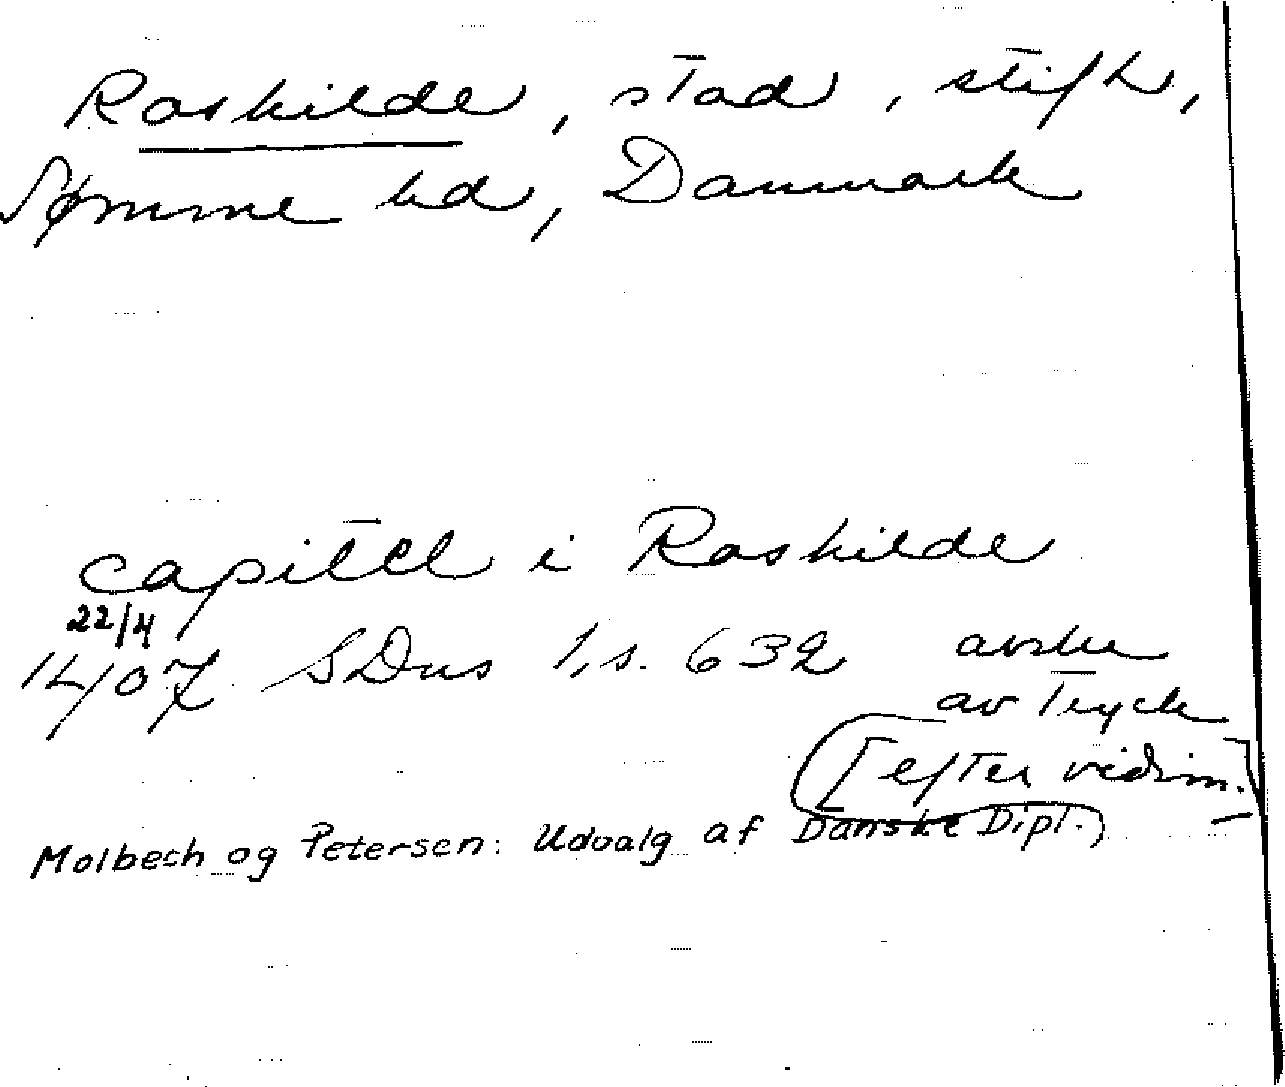 Roskilde, stad, stift,
Sømme hd, Danmark
capitel i Roskilde
22/4
14/07 SDns 1, s. 632 avskr
av tryck
[efter vidim.]
Molbech og Petersen: Udvalg af Danske Dipl.)